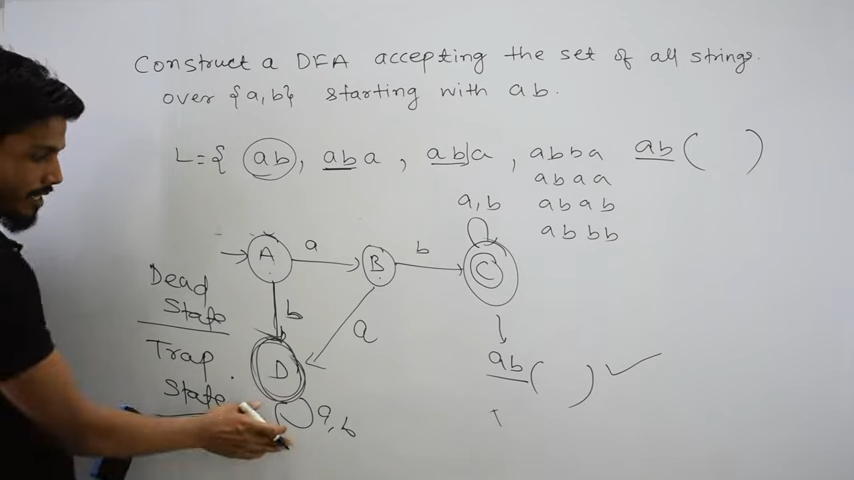 Construct a DFA accepting the set of all strings
over {a,b} starting with ab.
L={ ab, aba, ab|a, abba ab( )
abaa
abab
abbb
a,b
A a B b C
Dead
State
b
a
Trap
State
D
a,b
ab( )